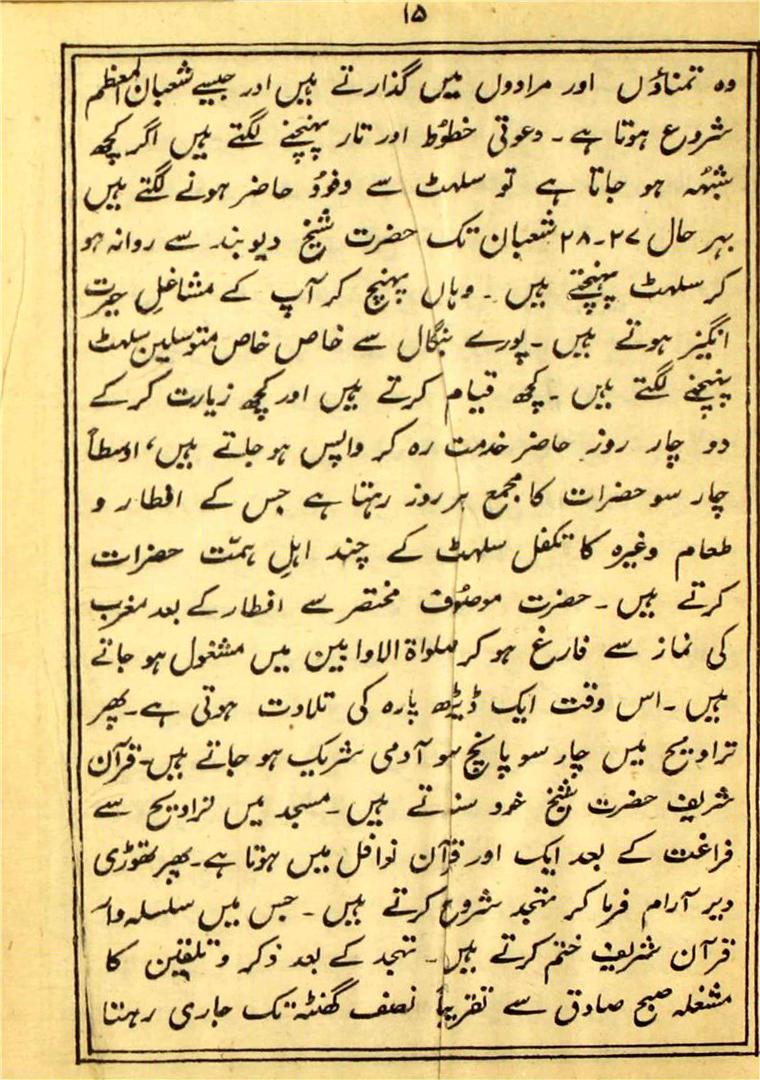 ۱۵
وہ تمناؤں اور مرادوں میں گذارتے ہیں اور جیسے شعبان المعظم
شروع ہوتا ہے۔ دعوتی خطوط اور تار پہنچنے لگتے ہیں اگر کچھ
شبہہ ہو جاتا ہے تو سلہٹ سے وفود حاضر ہونے لگتے ہیں
بہر حال ۲۷-۲۸ شعبان تک حضرت شیخ دیوبند سے روانہ ہو
کر سلہٹ پہنچتے ہیں۔ وہاں پہنچ کر آپ کے مشاغلِ حیرت
انگیز ہوتے ہیں۔ پورے بنگال سے خاص خاص متوسلین سلہٹ
پہنچنے لگتے ہیں۔ کچھ قیام کرتے ہیں اور کچھ زیارت کر کے
دو چار روز حاضر خدمت رہ کر واپس ہو جاتے ہیں، اوسطاً
چار سو حضرات کا مجمع ہر روز رہتا ہے جس کے افطار و
طعام وغیرہ کا تکفل سلہٹ کے چند اہلِ ہمّت حضرات
کرتے ہیں۔ حضرت موصوف مختصر سے افطار کے بعد مغرب
کی نماز سے فارغ ہو کر صلواۃ الاوابین میں مشغول ہو جاتے
ہیں۔ اس وقت ایک ڈیڑھ پارہ کی تلاوت ہوتی ہے۔ پھر
تراویح میں چار سو پانچ سو آدمی شریک ہو جاتے ہیں۔ قرآن
شریف حضرت شیخ خود سناتے ہیں۔ مسجد میں تراویح سے
فراغت کے بعد ایک اور قرآن نوافل میں ہوتا ہے۔ پھر تھوڑی
دیر آرام فرما کر تہجد شروع کرتے ہیں۔ جس میں سلسلہ وار
قرآن شریف ختم کرتے ہیں۔ تہجد کے بعد ذکر و تلقین کا
مشغلہ صبح صادق سے تقریباً نصف گھنٹہ تک جاری رہتا